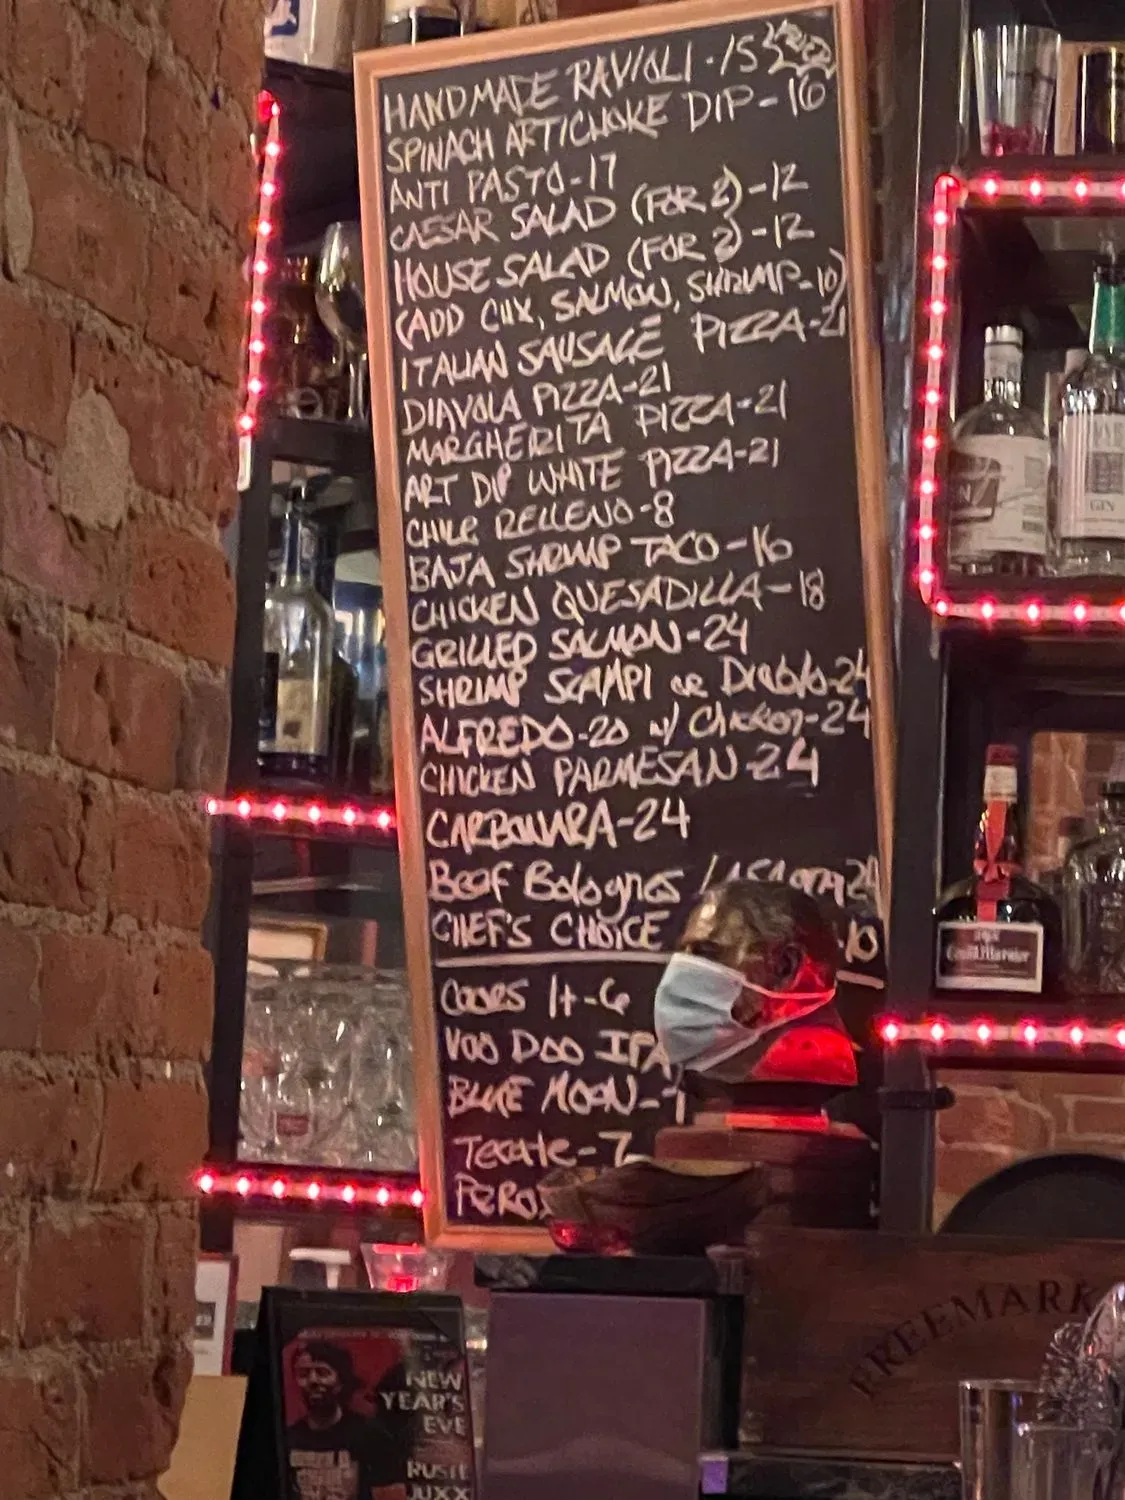 HANDMADE RAVIOLI - 15 FRIED
SPINACH ARTICHOKE DIP - 16
ANTI PASTO - 17
CAESAR SALAD (FOR 2) - 12
HOUSE SALAD (FOR 2) - 12
(ADD CHX, SALMON, SHRIMP - 10)
ITALIAN SAUSAGE PIZZA - 21
DIAVOLA PIZZA - 21
MARGHERITA PIZZA - 21
ART DIP WHITE PIZZA - 21
CHILE RELLENO - 8
BAJA SHRIMP TACO - 16
CHICKEN QUESADILLA - 18
GRILLED SALMON - 24
SHRIMP SCAMPI OR Diablo - 24
ALFREDO - 20 w/ Chicken - 24
CHICKEN PARMESAN - 24
CARBONARA - 24
Beef Bolognes / LASAgna 24
CHEF'S CHOICE 10
Coors lt - 6
VOO DOO IPA
BLUE MOON - 7
Tecate - 7
PERO
GIN
Grand Marnier
FREEMARK
NEW
YEAR'S
EVE